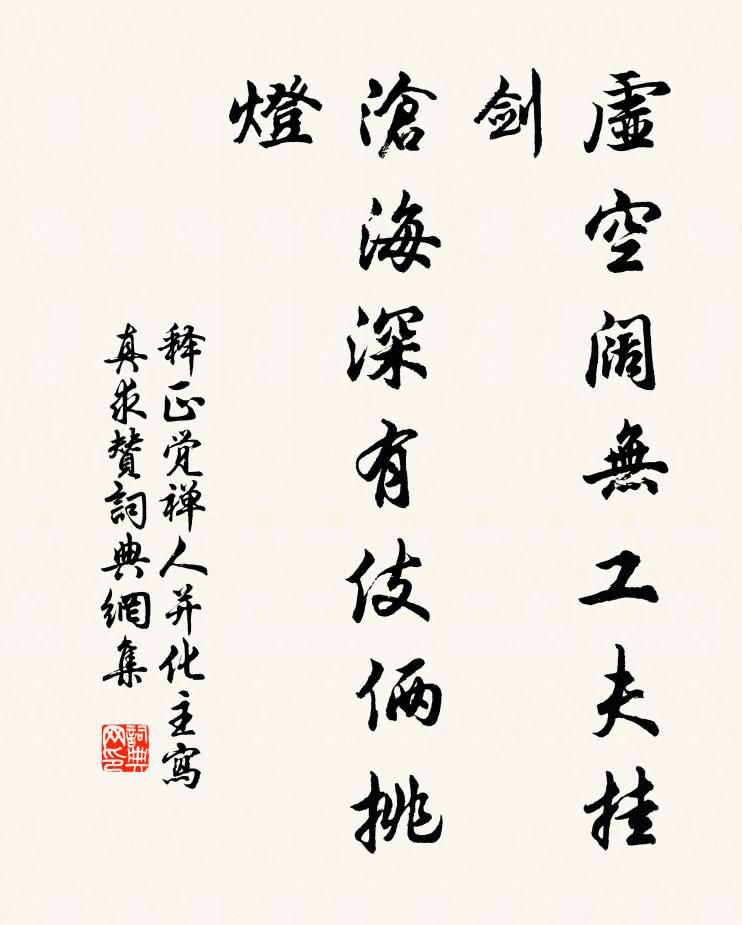 虛空闊無工夫挂
剑
滄海深有伎倆挑
燈
释正觉禅人并化主寫
真求贊詞典網集
詞典网印